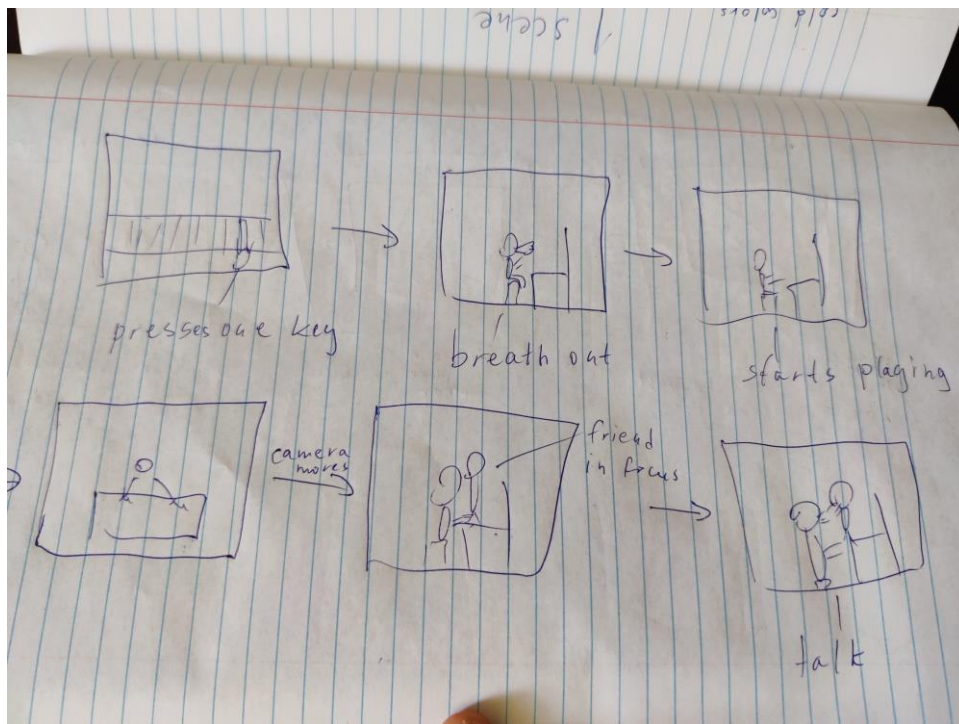 cold colors
scene
presses one key
breath out
starts plaging
camera
moves
friend
in focus
talk